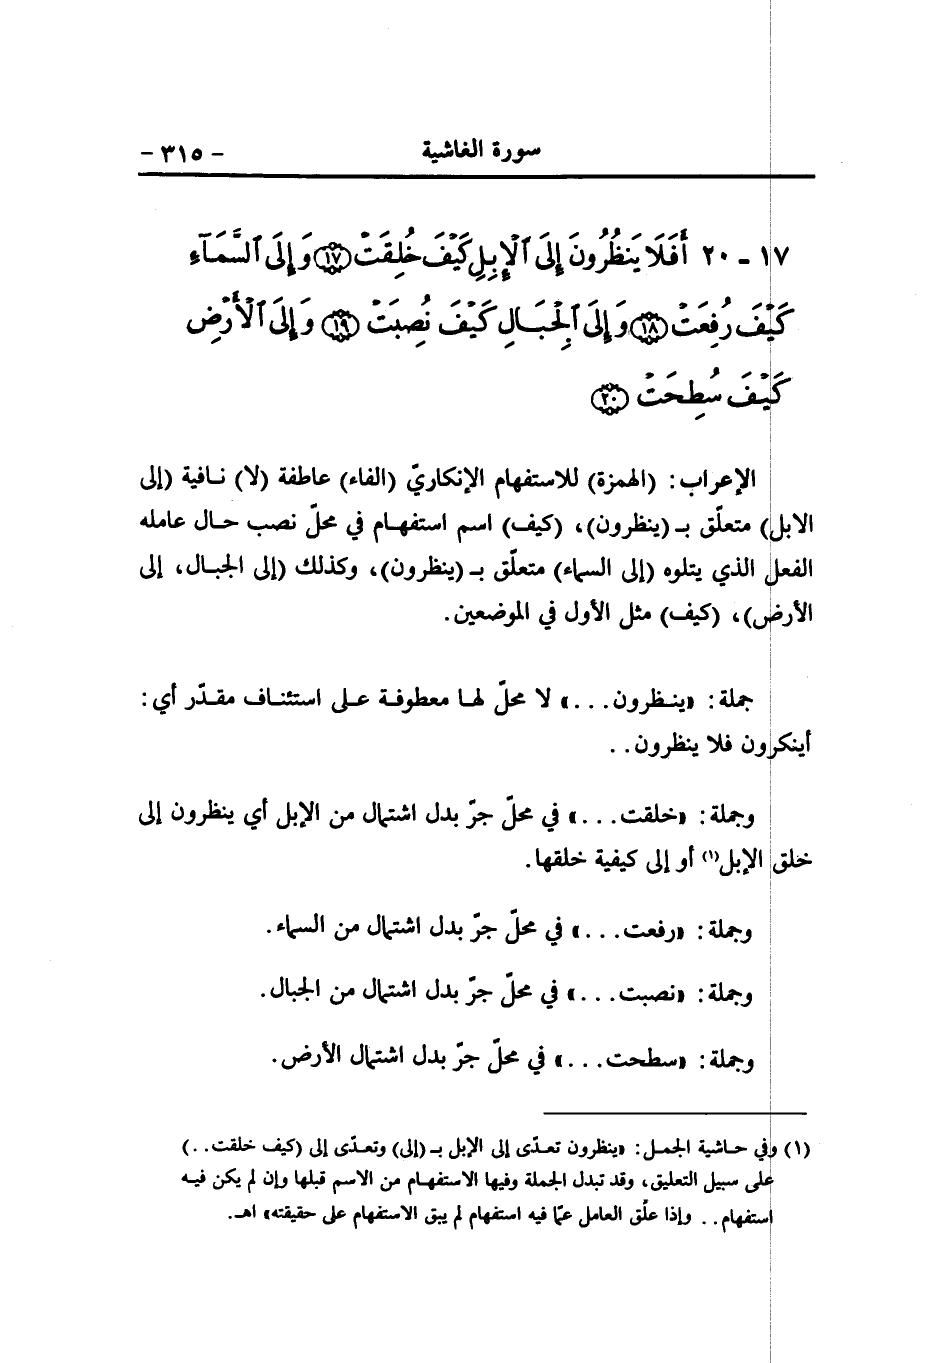 سورة الغاشية
- ٣١٥ -
١٧ - ٢٠ أَفَلَا يَنظُرُونَ إِلَى ٱلْإِبِلِ كَيْفَ خُلِقَتْ ﴿١٧﴾ وَإِلَى ٱلسَّمَآءِ
كَيْفَ رُفِعَتْ ﴿١٨﴾ وَإِلَى ٱلْجِبَالِ كَيْفَ نُصِبَتْ ﴿١٩﴾ وَإِلَى ٱلْأَرْضِ
كَيْفَ سُطِحَتْ ﴿٢٠﴾
الإعراب: (الهمزة) للاستفهام الإنكاريّ (الفاء) عاطفة (لا) نافية (إلى
الابل) متعلّق بـ (ينظرون)، (كيف) اسم استفهام في محلّ نصب حال عامله
الفعل الذي يتلوه (إلى السماء) متعلّق بـ (ينظرون)، وكذلك (إلى الجبال، إلى
الأرض)، (كيف) مثل الأول في الموضعين.
جملة: «ينظرون...» لا محلّ لها معطوفة على استئناف مقدّر أي:
أينكرون فلا ينظرون..
وجملة: «خلقت...» في محلّ جرّ بدل اشتمال من الإبل أي ينظرون إلى
خلق الإبل(١) أو إلى كيفية خلقها.
وجملة: «رفعت...» في محلّ جرّ بدل اشتمال من السماء.
وجملة: «نصبت...» في محلّ جرّ بدل اشتمال من الجبال.
وجملة: «سطحت...» في محلّ جرّ بدل اشتمال الأرض.
(١) وفي حاشية الجمل: «ينظرون تعدّى إلى الإبل بـ (إلى) وتعدّى إلى (كيف خلقت..)
على سبيل التعليق، وقد تبدل الجملة وفيها الاستفهام من الاسم قبلها وإن لم يكن فيه
استفهام.. وإذا علّق العامل عمّا فيه استفهام لم يبق الاستفهام على حقيقته» اهـ.